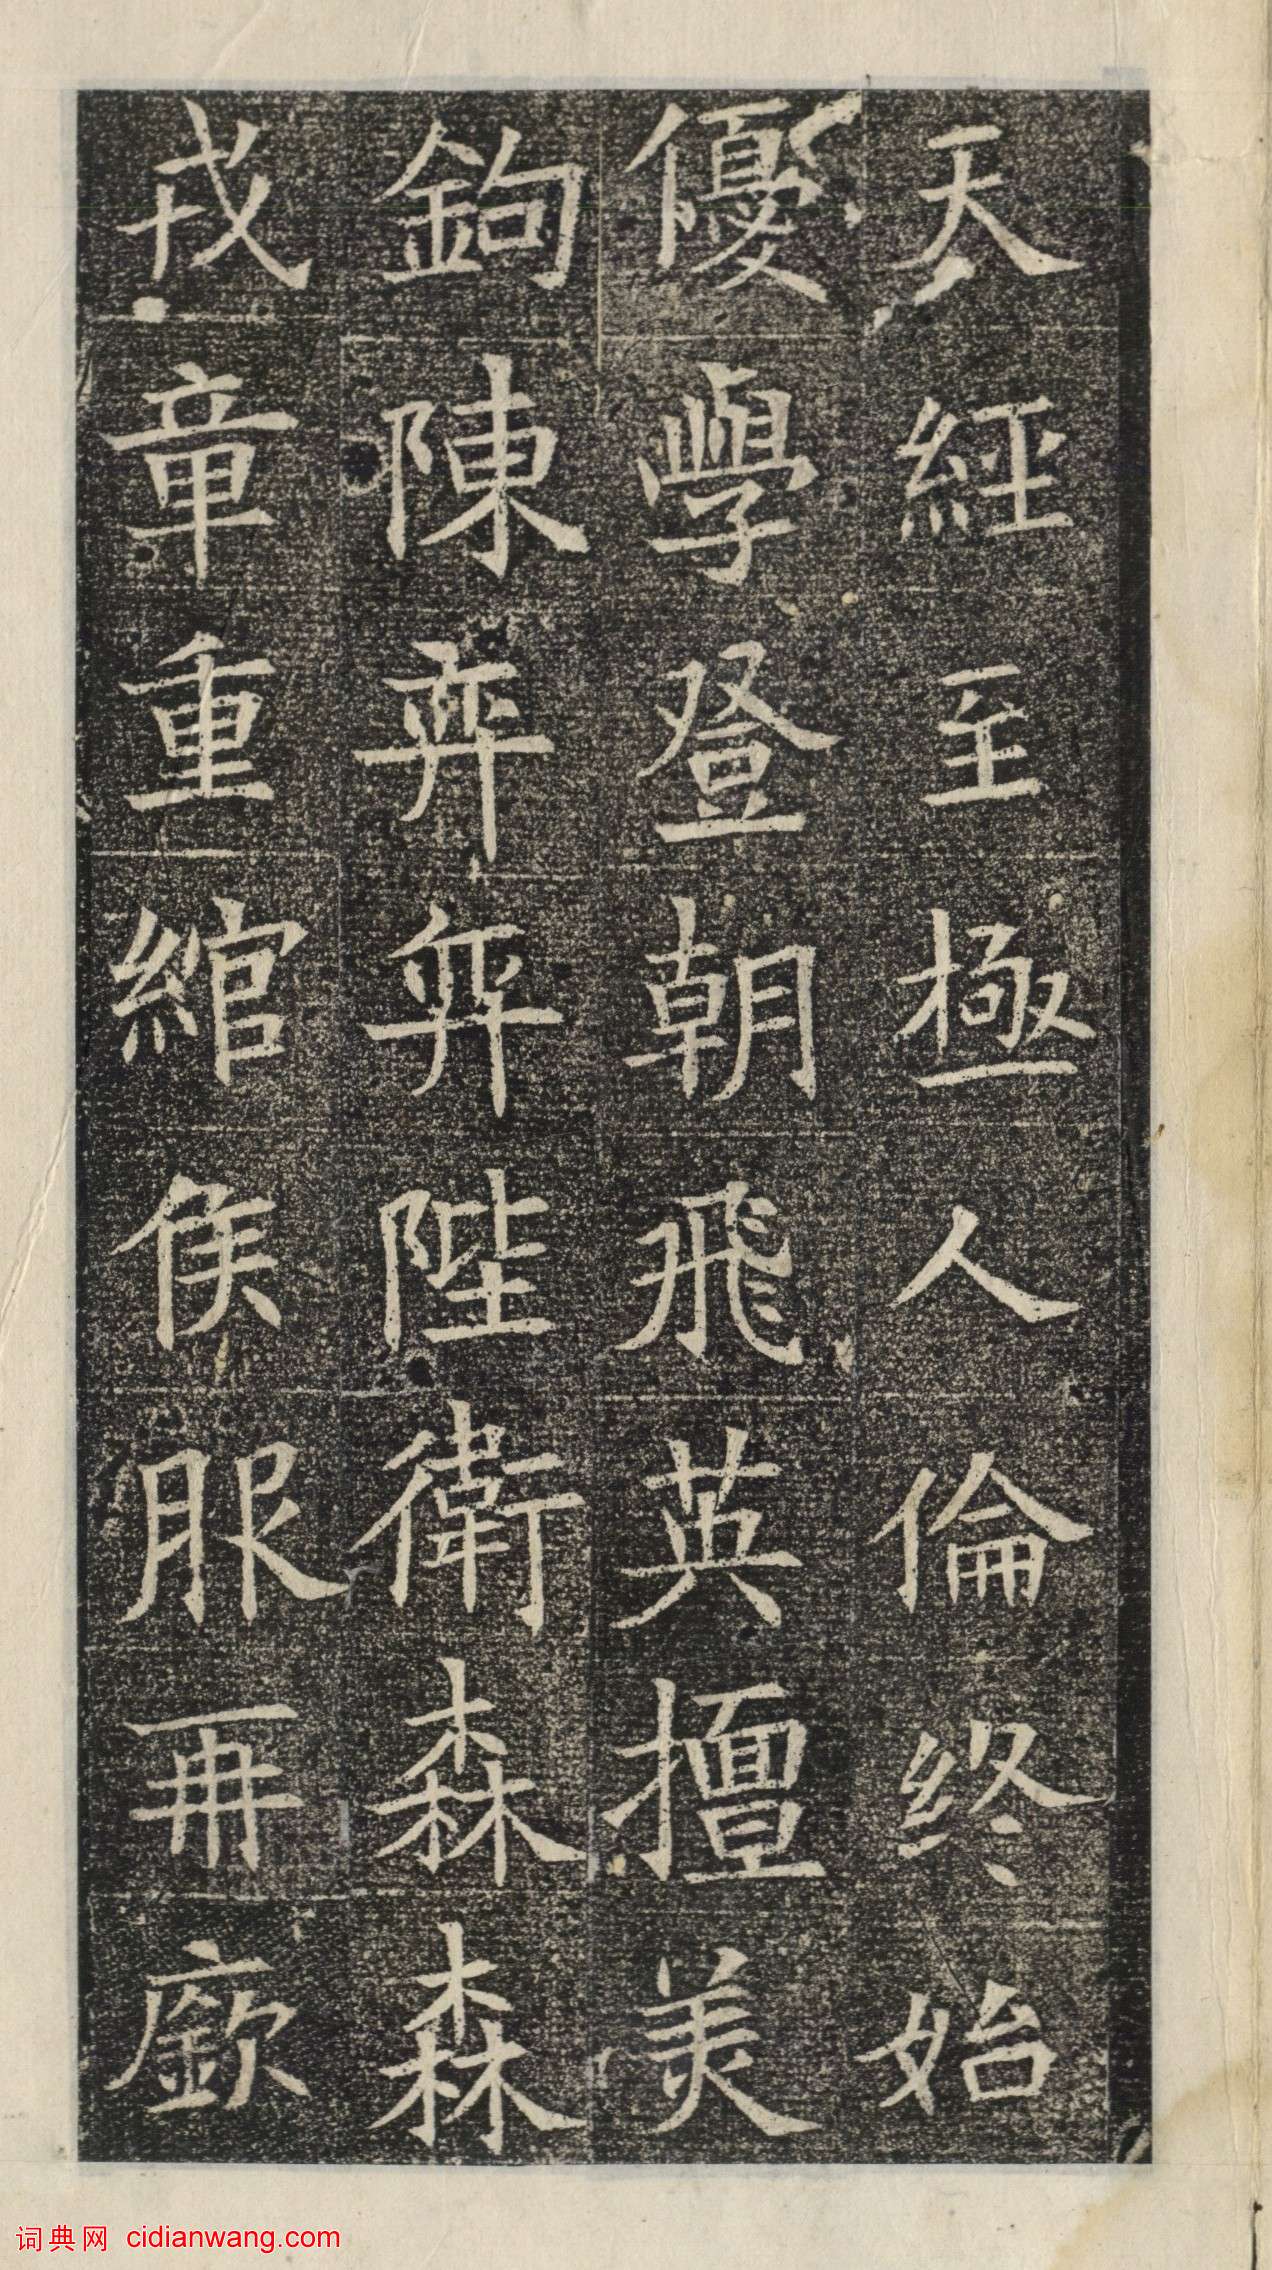 天經至極人倫終始
優學登朝飛英擅美
鉤陳弈弈陛衛森森
戎章重綰侯服再廞
词典网 cidianwang.com